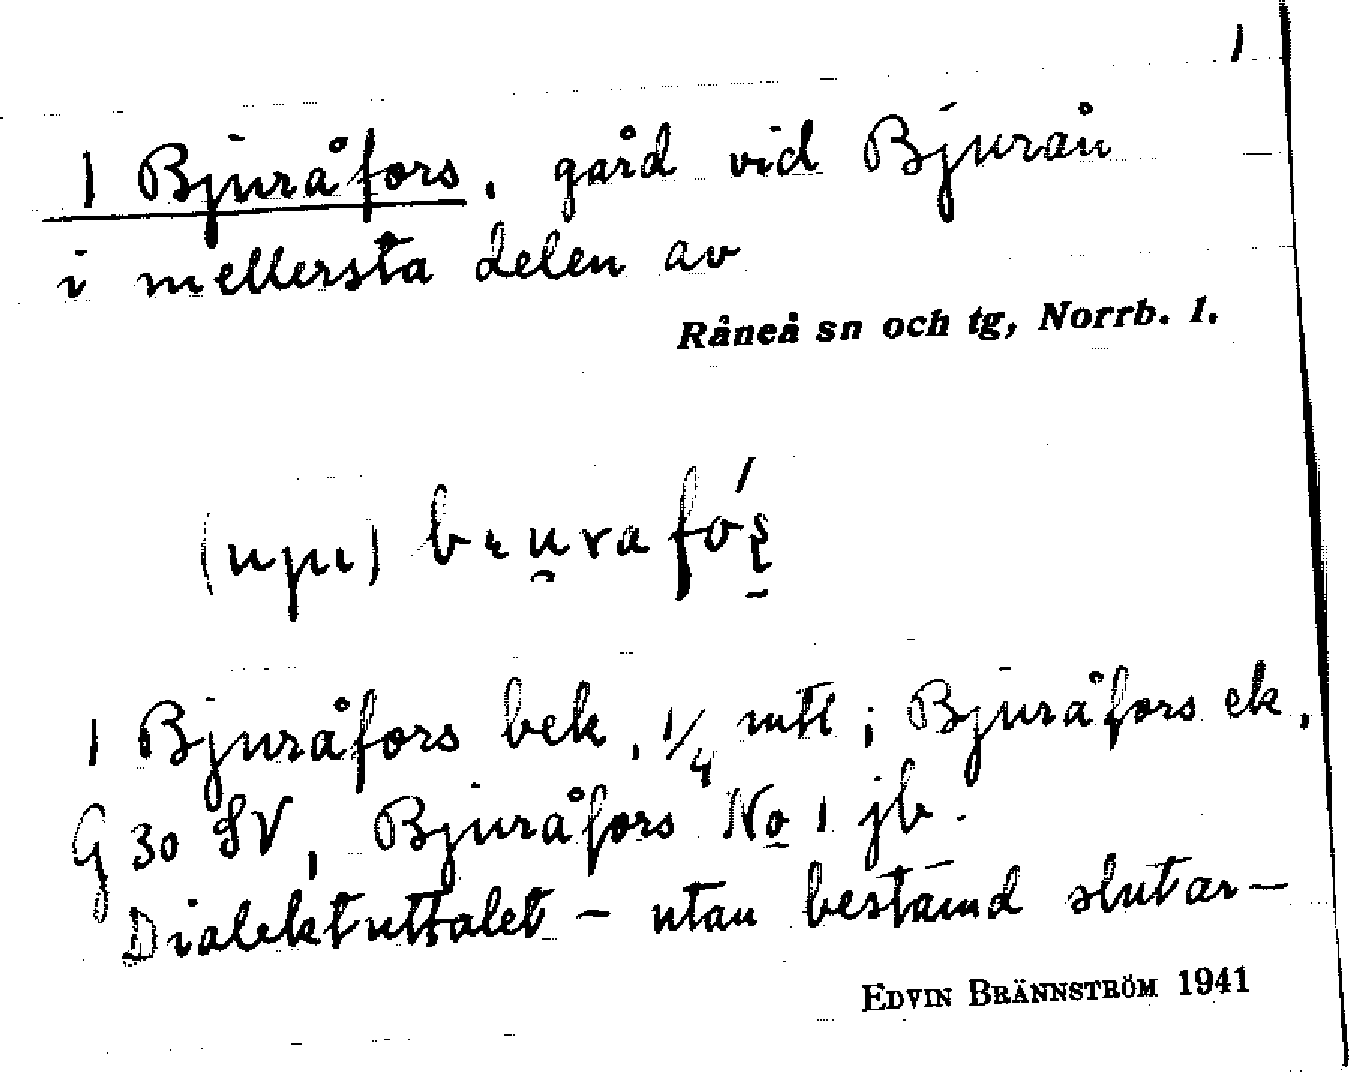 1
1 Bjuråfors, gård vid Bjurån
i mellersta delen av
Råneå sn och tg, Norrb. l.
(upu)
1 Bjuråfors bek, 1/4 mtl; Bjuråfors ek,
G 30 SV, Bjuråfors No 1 jb.
Dialektuttalet - utan bestämd slutar-
EDVIN BRÄNNSTRÖM 1941